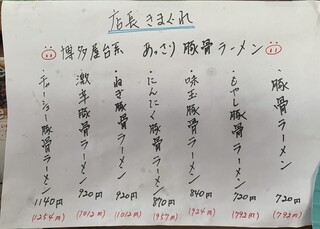 店長きまぐれ
博多屋台系 あっさり豚骨ラーメン
豚骨ラーメン 720円 (792円)
もやし豚骨ラーメン 720円 (792円)
味玉豚骨ラーメン 840円 (924円)
にんにく豚骨ラーメン 870円 (957円)
ねぎ豚骨ラーメン 920円 (1012円)
激辛豚骨ラーメン 920円 (1012円)
チャーシュー豚骨ラーメン 1140円 (1254円)